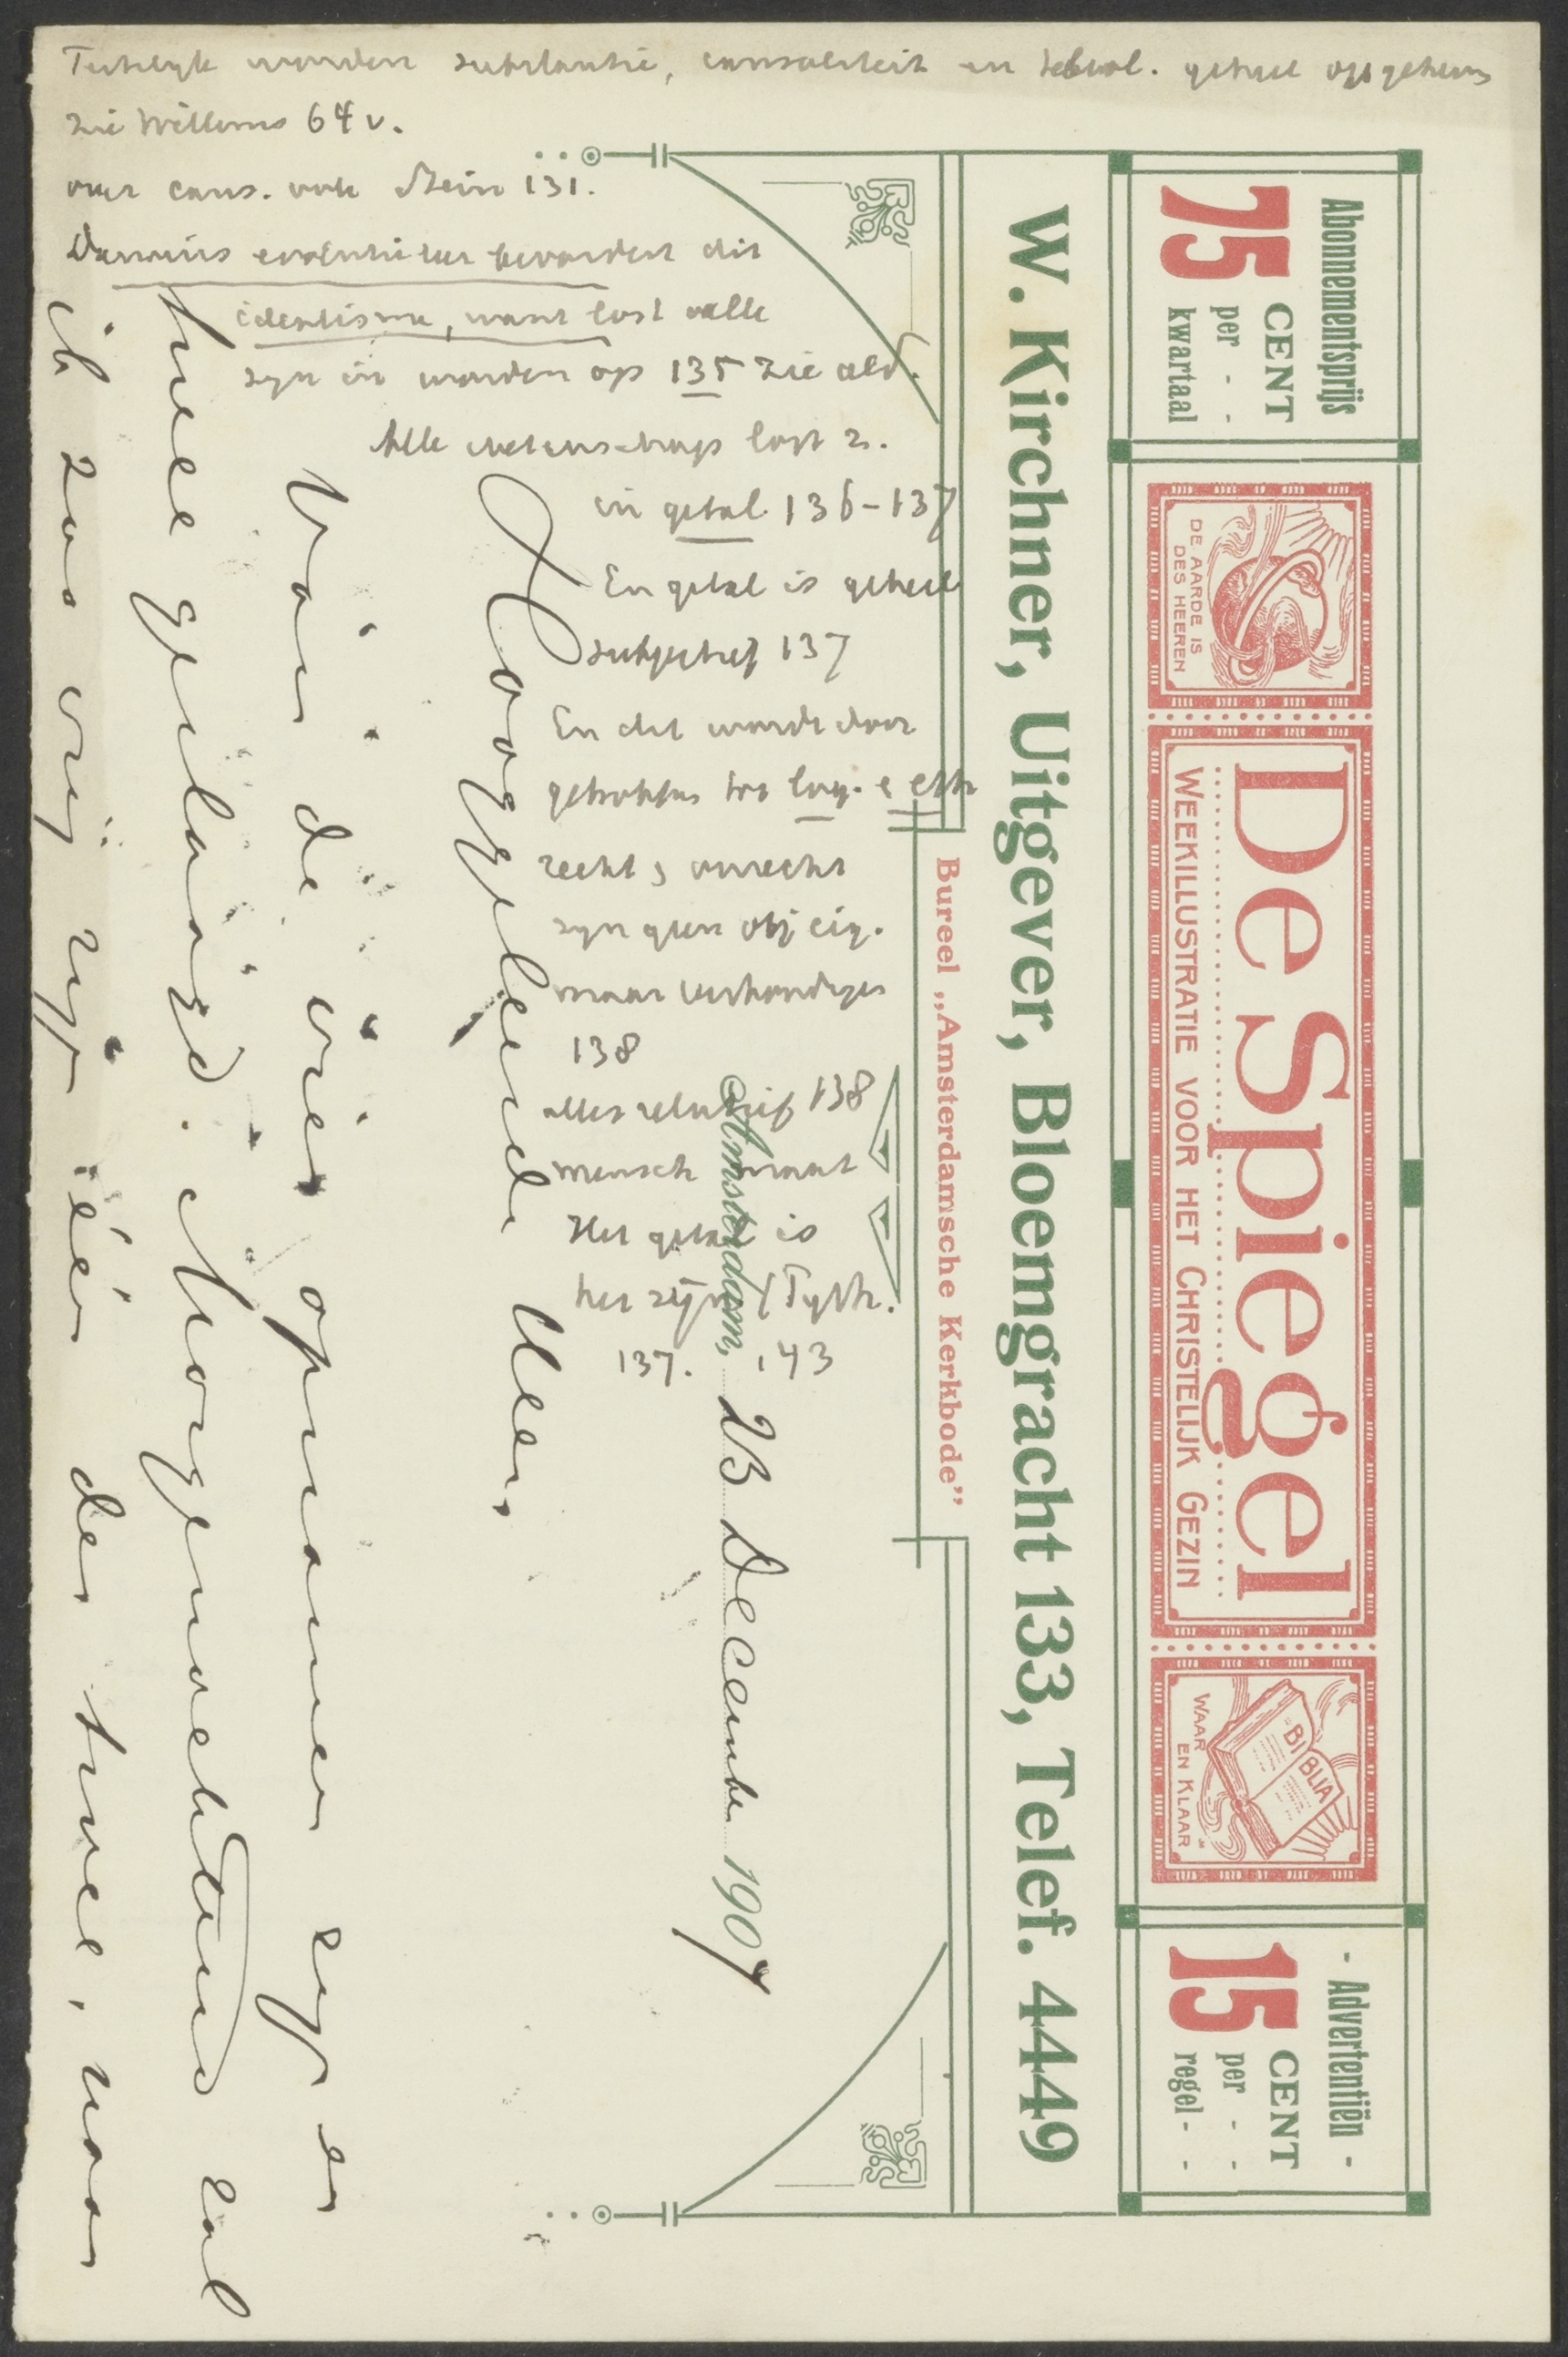 Abonnementsprijs
75 CENT
per - -
kwartaal
DE AARDE IS
DES HEEREN
De Spiegel
WEEKILLUSTRATIE VOOR HET CHRISTELIJK GEZIN
BIBLIA
WAAR
EN KLAAR
- Advertentiën -
15 CENT
per - -
regel - -
W. Kirchner, Uitgever, Bloemgracht 133, Telef. 4449
Bureel „Amsterdamsche Kerkbode”
Amsterdam, 23 December 1907
Hooggeleerde Heer,
Van de vier opnamen zijn er
twee geslaagd. Morgenochtend zal
ik zoo vrij zijn één der twee, naar
worden substantie, causaliteit en geheel opgeheven
zie Willems 64 v.
over caus. ook Stein 131.
Darwins evolutieleer bevordert dit
idealisme, want lost alle
zijn in worden op 135 zie ald.
Alle wetenschap lost z.
in getal 136-137
En getal is geheel
subjectief 137
En dit wordt door
getrokken tot log. e eth
recht, onrecht
zijn geen obj eig.
maar
138
alles relatief 138
mensch maat
Het getal is
het zijn
137. 143